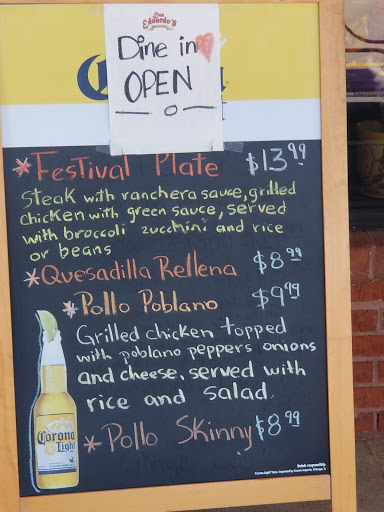 Don Eduardo's
Dine in
OPEN
*Festival Plate $13.99
Steak with ranchera sauce, grilled
chicken with green sauce, served
with broccoli zucchini and rice
or beans
*Quesadilla Rellena $8.99
*Pollo Poblano $9.99
Grilled chicken topped
with poblano peppers onions
and cheese, served with
rice and salad.
*Pollo Skinny $8.99
Corona
Light
Drink responsibly.